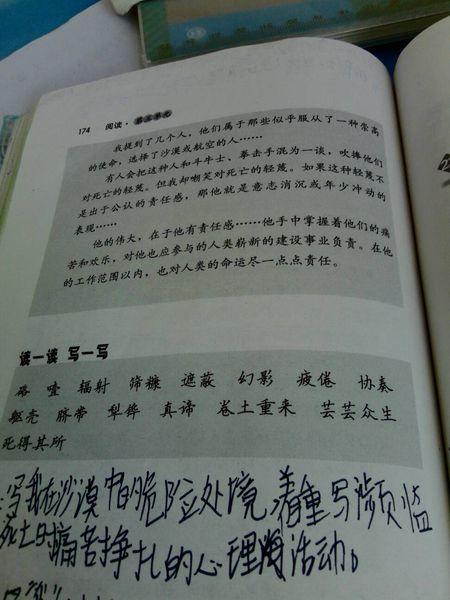 174 阅读·第三单元
我提到了几个人,他们属于那些似乎服从了一种崇高
的使命,选择了沙漠或航空的人……
有人会把这种人和斗牛士、拳击手混为一谈,吹捧他们
对死亡的轻蔑。但我却嘲笑对死亡的轻蔑。如果这种轻蔑不
是出于公认的责任感,那他就是意志消沉或年少冲动的
表现……
他的伟大,在于他有责任感……他手中掌握着他们的痛
苦和欢乐,对他也应参与的人类崭新的建设事业负责。在他
的工作范围以内,也对人类的命运尽一点点责任。
读一读 写一写
硌 噎 辐射 筛糠 遮蔽 幻影 疲倦 协奏
躯壳 脐带 犁铧 真谛 卷土重来 芸芸众生
死得其所
写我在沙漠中的危险处境,着重写濒临
死亡时痛苦挣扎的心理活动。